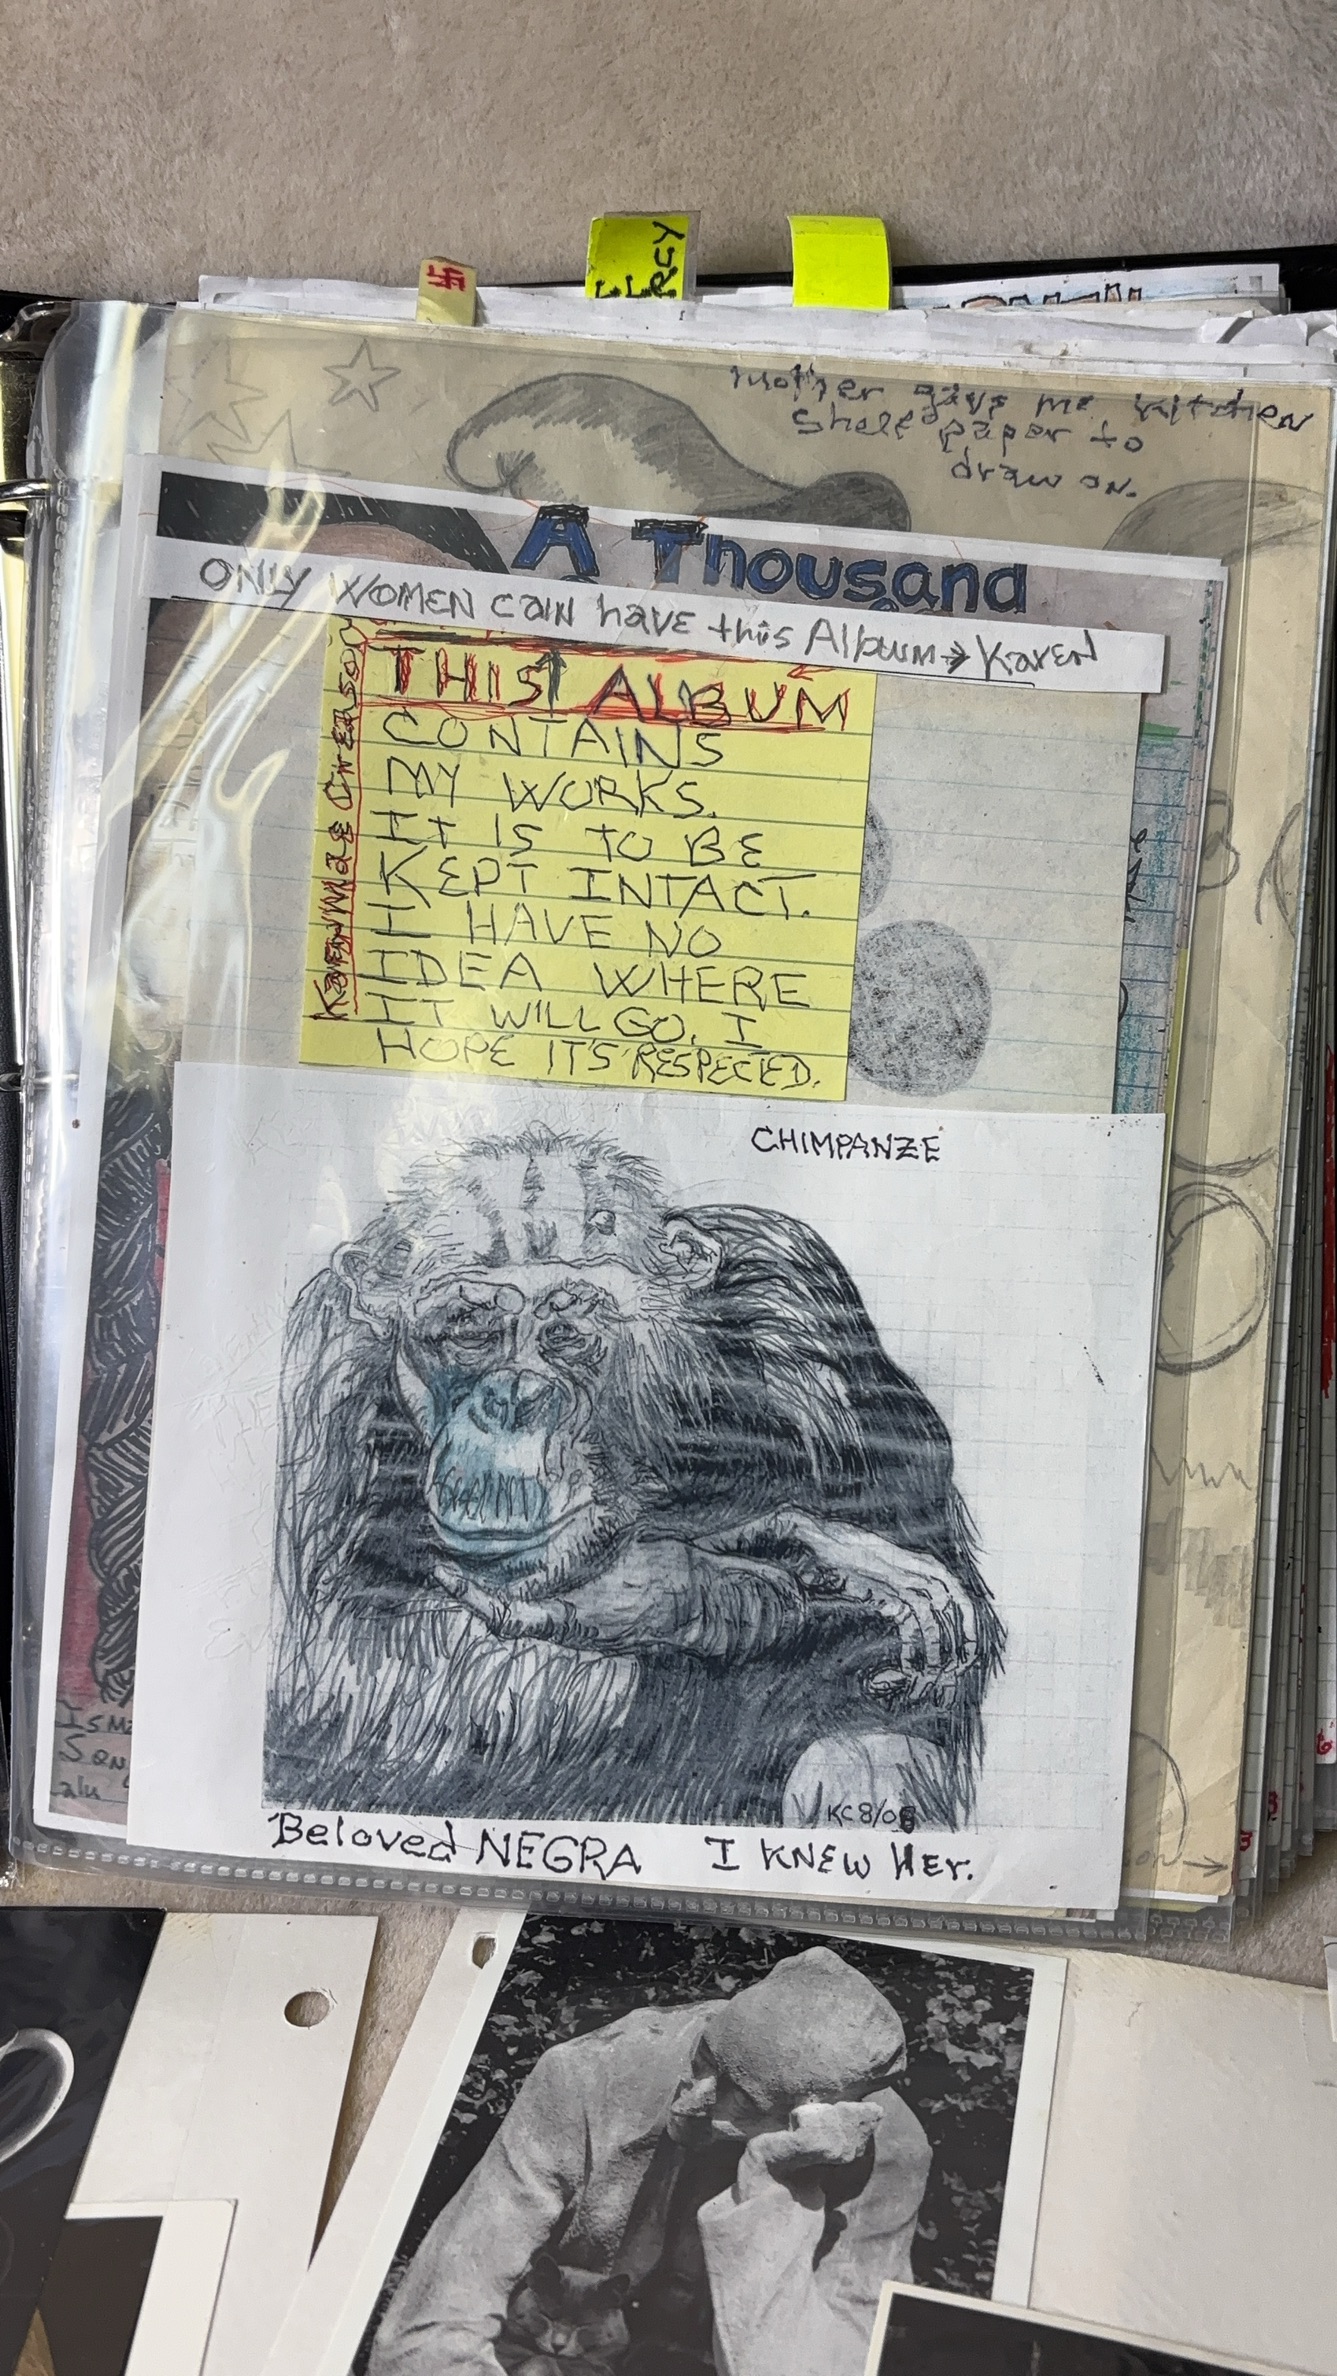 RCY
Mother gave me kitchen
Shelf paper to
draw on.
A Thousand
ONLY WOMEN can have this Album→ Karen
THIS ALBUM
CONTAINS
MY WORKS.
IT IS TO BE
KEPT INTACT.
I HAVE NO
IDEA WHERE
IT WILL GO. I
HOPE IT'S RESPECTED.
Karen
CHIMPANZE
KC 8/08
Beloved NEGRA I KNEW Her.